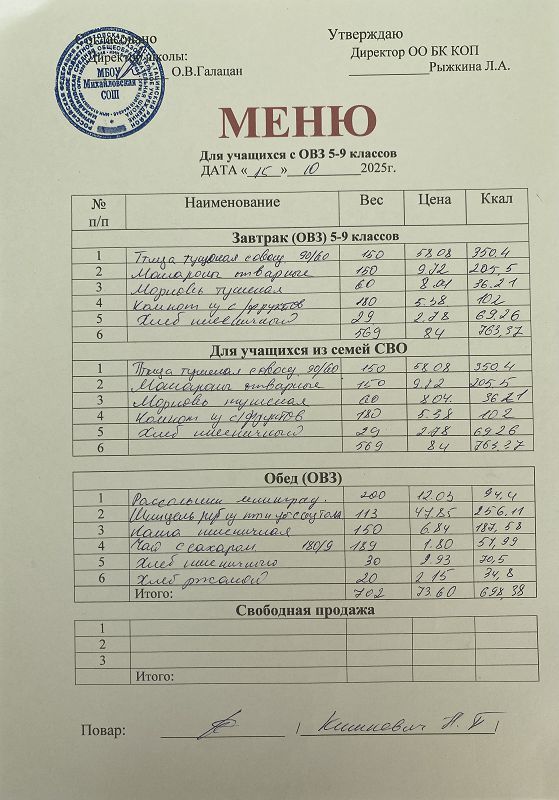 Согласовано Утверждаю
Директор школы: Директор ОО БК КОП
О.В.Галацан Рыжкина Л.А.
МБОУ
Михайловская
СОШ
МЕНЮ
Для учащихся с ОВЗ 5-9 классов
ДАТА «15» 10 2025г.
№ п/п Наименование Вес Цена Ккал
Завтрак (ОВЗ) 5-9 классов
1 Птица тушеная с овощ. 90/60 150 58.08 350.4
2 Макароны отварные 150 9.72 205,5
3 Морковь тушеная 60 8.04 36.21
4 Компот из с/фруктов 180 5.38 102
5 Хлеб пшеничный 29 2.78 69.26
6 569 84 763,37
Для учащихся из семей СВО
1 Птица тушеная с овощ. 90/60 150 58.08 350.4
2 Макароны отварные 150 9.72 205.5
3 Морковь тушеная 60 8.04. 36.21
4 Компот из с/фруктов 180 5.38 102
5 Хлеб пшеничный 29 2.78 69.26
6 569 84 763.37
Обед (ОВЗ)
1 Рассольник ленинград. 200 12.03 94,4
2 Шницель руб из птицы с соусом 113 47.85 256,11
3 Каша пшеничная 150 6.84 187,58
4 Чай с сахаром 180/9 189 1.80 51,99
5 Хлеб пшеничный 30 2.93 70,5
6 Хлеб ржаной 20 2.15 34,8
Итого: 702 73.60 698,38
Свободная продажа
1
2
3
Итого:
Повар: